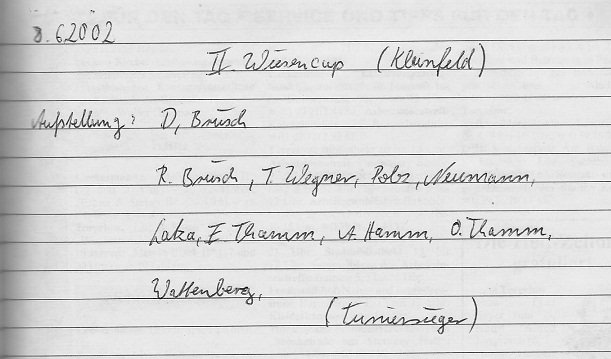 8.6.2002
II. Wiesencup (Kleinfeld)
Aufstellung: D, Brüsch
R. Brüsch, T. Wegner, Polz, Neumann,
Laka, E. Thamm, A. Hamm, O. Thamm,
Wattenberg,
(Turniersieger)